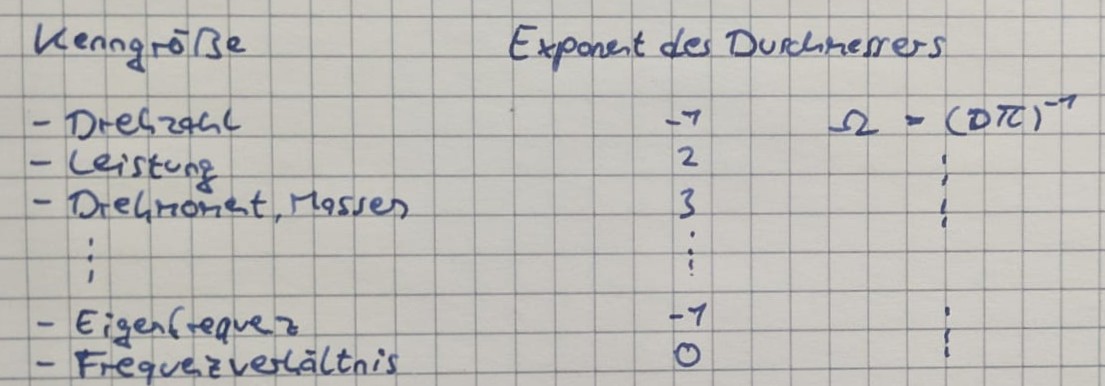 Kenngröße Exponent des Durchmessers
- Drehzahl -1 Ω = (Dπ)⁻¹
- Leistung 2
- Drehmoment, Massen 3
- Eigenfrequez -1
- Frequezverhältnis 0